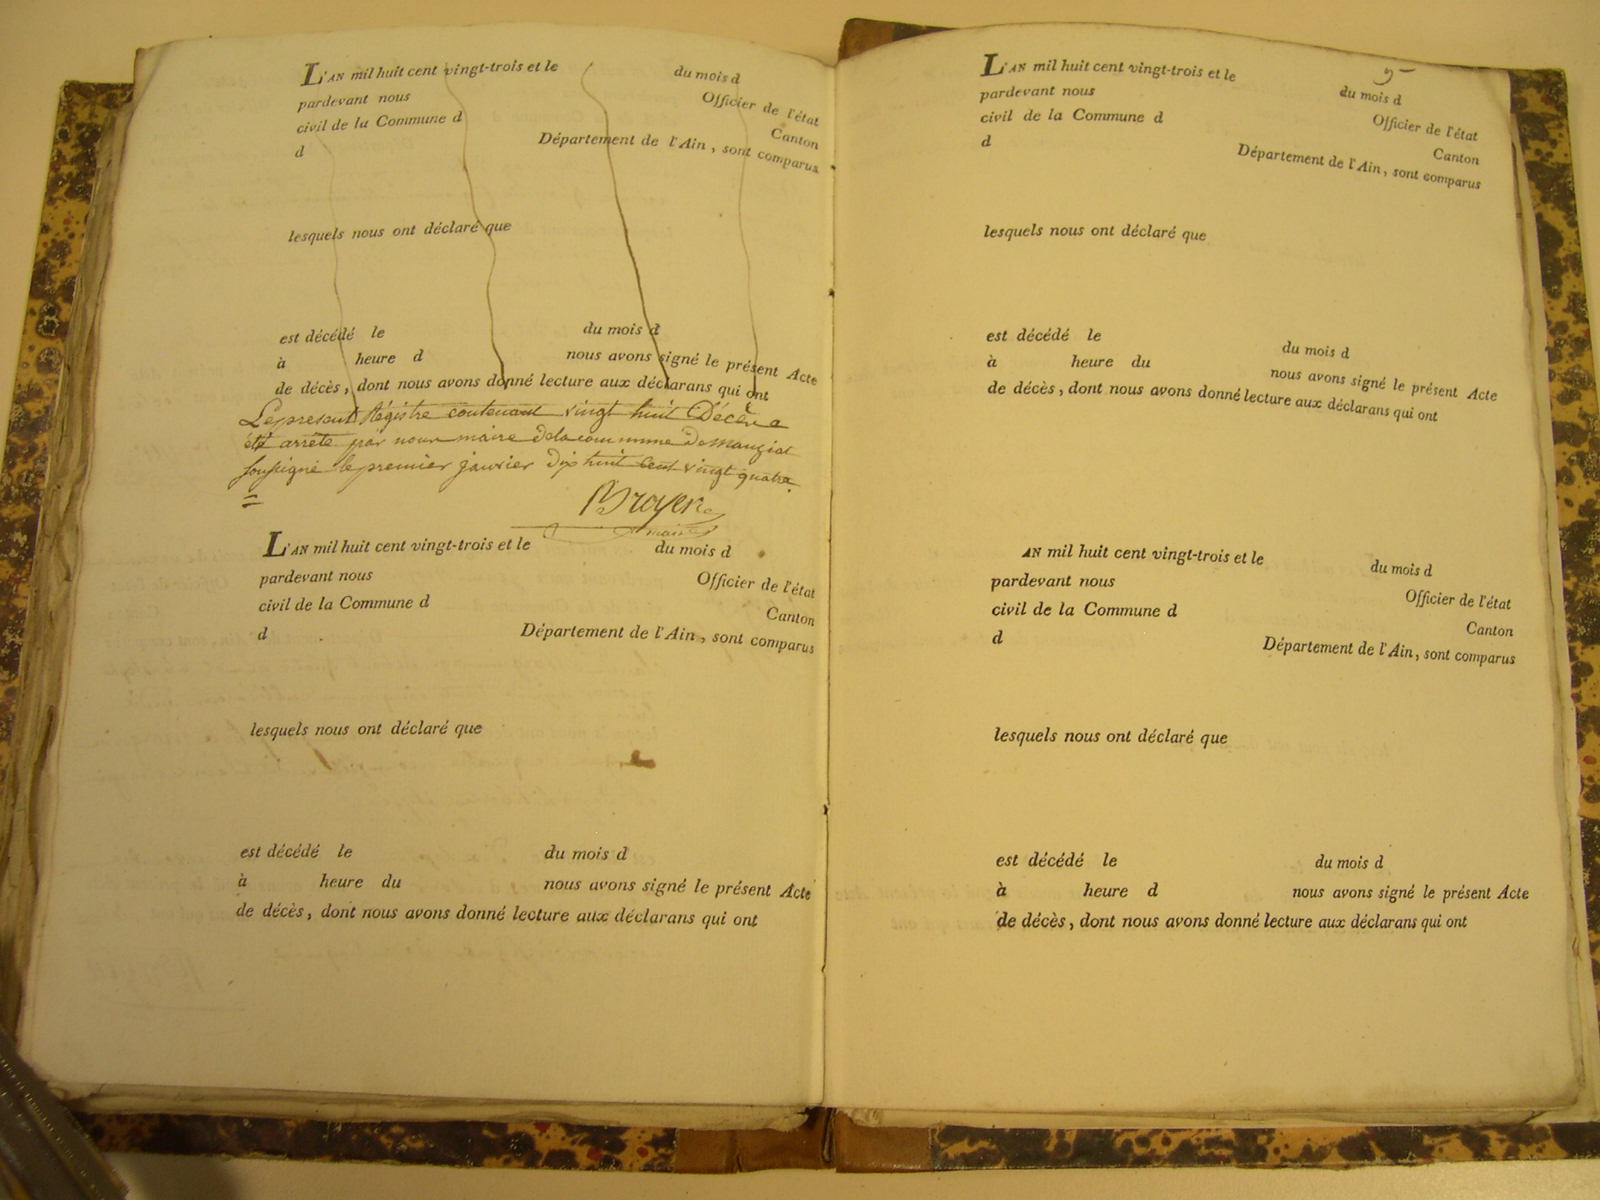 L'AN mil huit cent vingt-trois et le du mois d
pardevant nous Officier de l'état
civil de la Commune d Canton
d Département de l'Ain, sont comparus
lesquels nous ont déclaré que
est décédé le du mois d
à heure d nous avons signé le présent Acte
de décès, dont nous avons donné lecture aux déclarans qui ont
Le present Régistre contenant vingt huit Décès a
été arrété par nous maire de la commune De manziat
soussigné le premier janvier Dix huit Cent vingt quatre
Broyer
maire
L'AN mil huit cent vingt-trois et le du mois d
pardevant nous Officier de l'état
civil de la Commune d Canton
d Département de l'Ain, sont comparus
lesquels nous ont déclaré que
est décédé le du mois d
à heure du nous avons signé le présent Acte
de décès, dont nous avons donné lecture aux déclarans qui ont
L'AN mil huit cent vingt-trois et le du mois d
pardevant nous Officier de l'état
civil de la Commune d Canton
d Département de l'Ain, sont comparus
lesquels nous ont déclaré que
est décédé le du mois d
à heure du nous avons signé le présent Acte
de décès, dont nous avons donné lecture aux déclarans qui ont
AN mil huit cent vingt-trois et le du mois d
pardevant nous Officier de l'état
civil de la Commune d Canton
d Département de l'Ain, sont comparus
lesquels nous ont déclaré que
est décédé le du mois d
à heure d nous avons signé le présent Acte
de décès, dont nous avons donné lecture aux déclarans qui ont